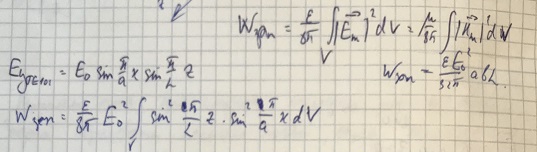 Wзап = ε/8π ∫V |E⃗m|² dV = μ/8π ∫ |H⃗m|² dV
Ey TE101 = E0 sin π/a x sin π/L z
Wзап = εE0²/32π abL.
Wзап = ε/8π E0² ∫V sin² π/L z · sin² π/a x dV